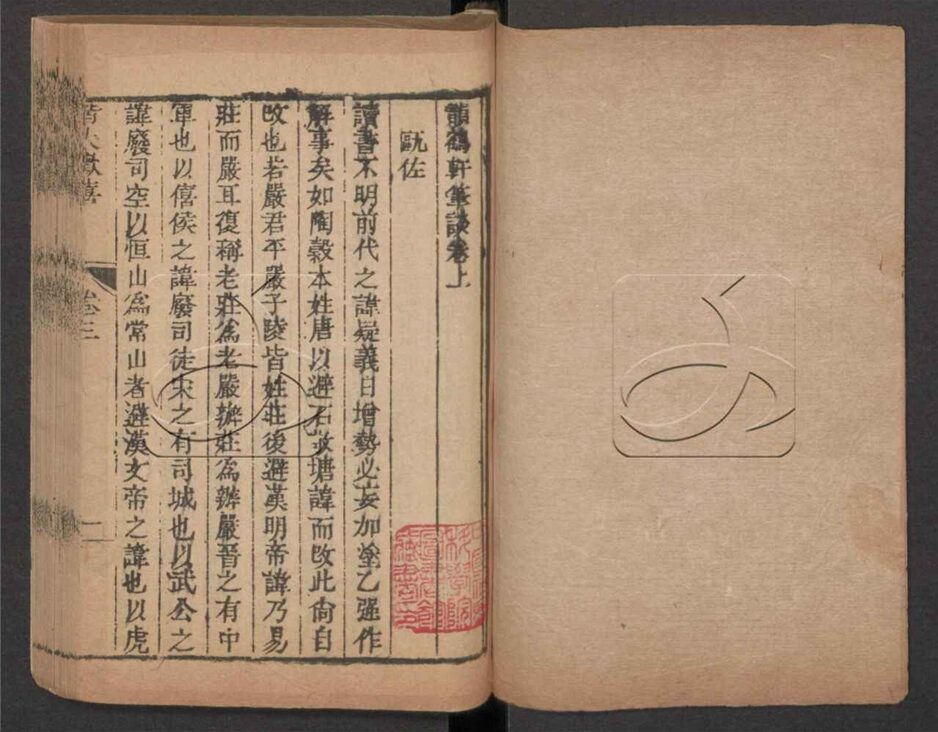 韻鶴軒筆談卷上
甌佐
讀書不明前代之諱疑義日增勢必妄加塗乙强作
解事矣如陶穀本姓唐以避石敬塘諱而改此尙自
改也若嚴君平嚴子陵皆姓莊後避漢明帝諱乃易
莊而嚴耳復稱老莊爲老嚴辦莊爲辦嚴晉之有中
軍也以僖侯之諱廢司徒宋之有司城也以武公之
諱廢司空以恒山爲常山者避漢文帝之諱也以虎
皆大歡喜 卷三 一